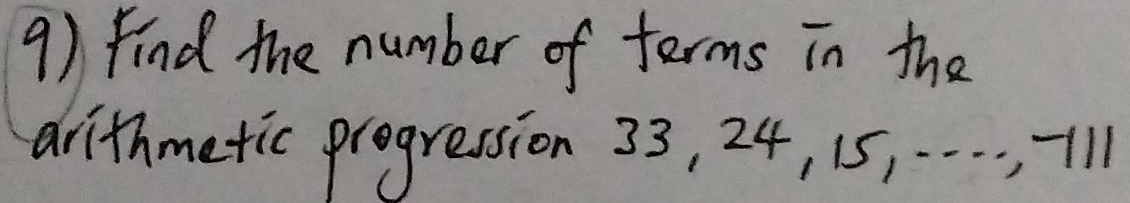 9) Find the number of terms in the
arithmetic progression 33, 24, 15, ----, -111